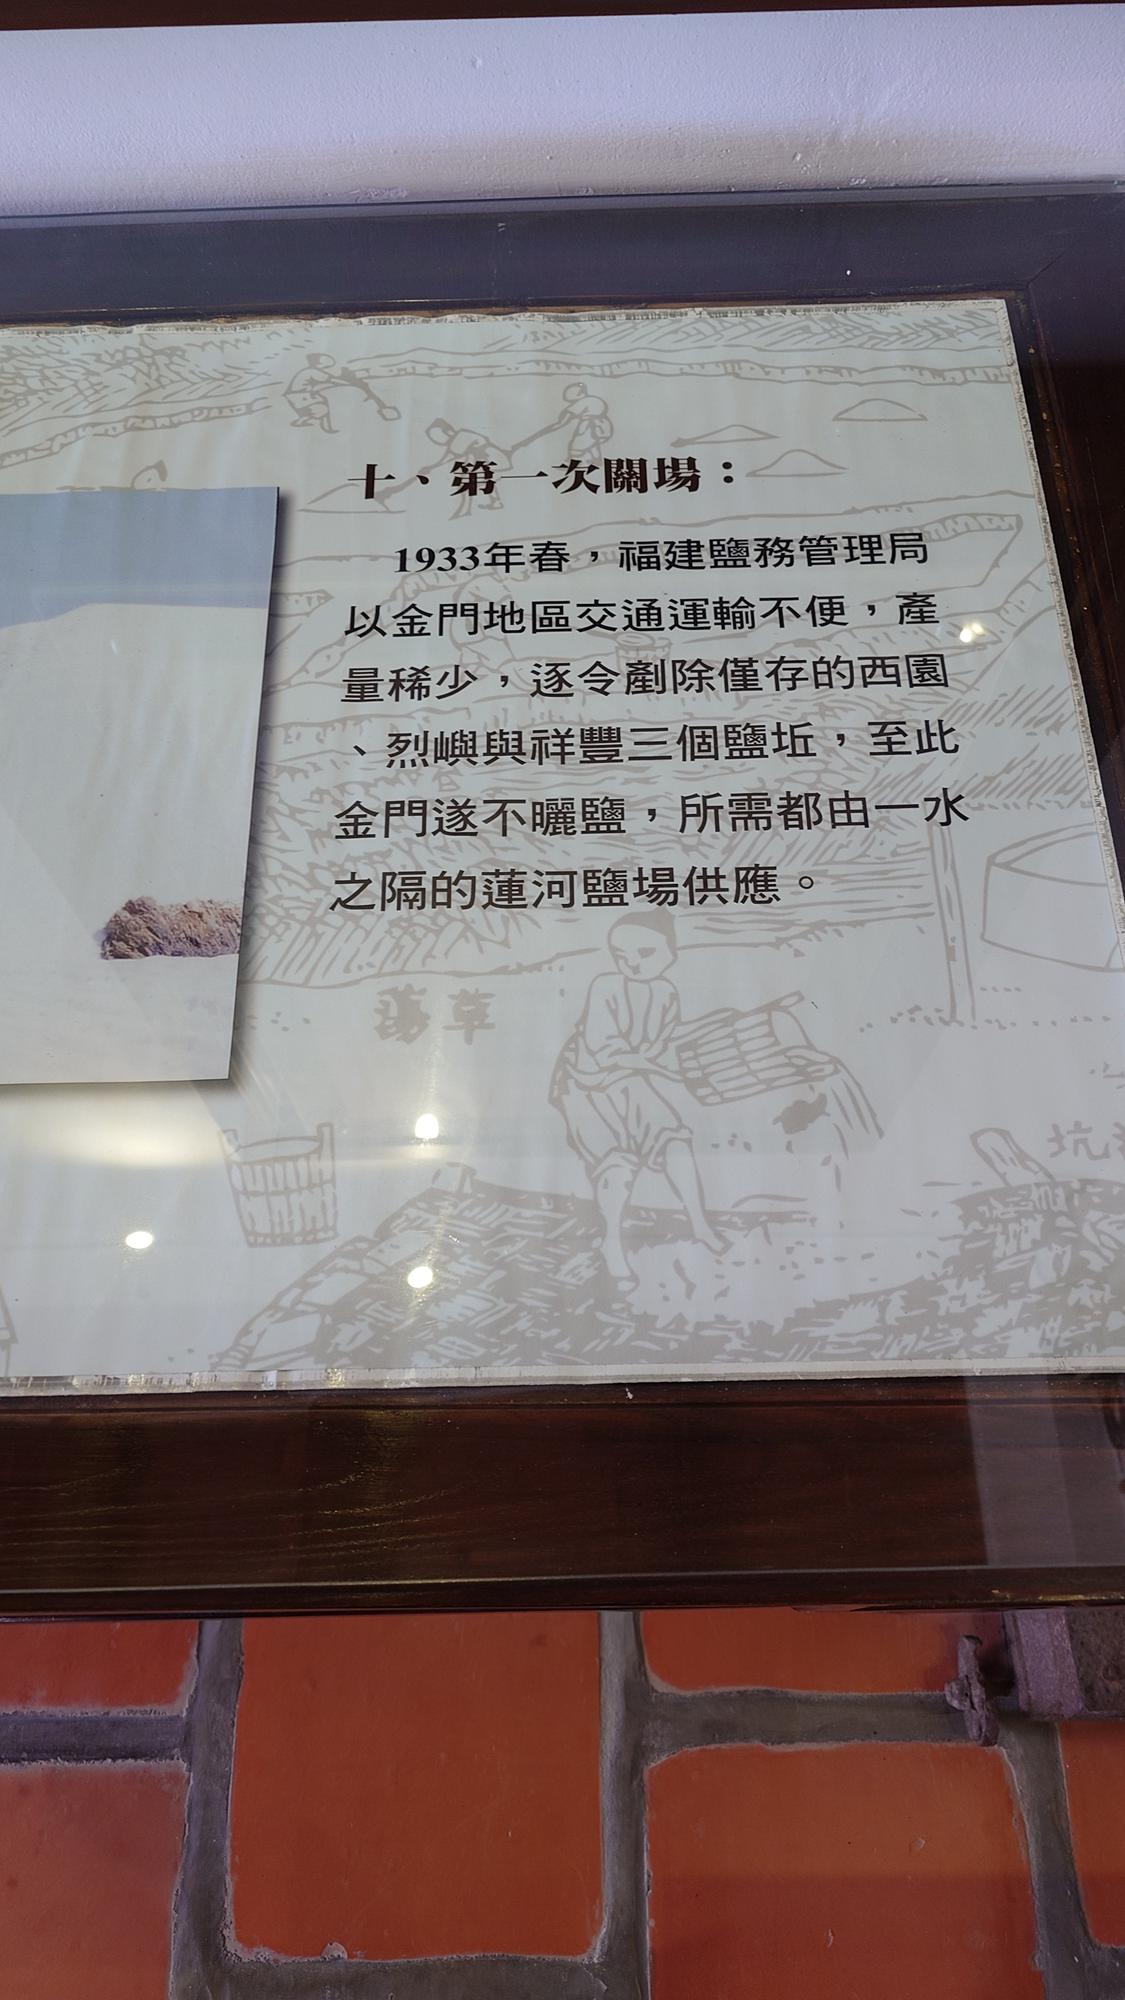 十、第一次關場：
1933年春，福建鹽務管理局
以金門地區交通運輸不便，產
量稀少，逐令剷除僅存的西園
、烈嶼與祥豐三個鹽坵，至此
金門遂不曬鹽，所需都由一水
之隔的蓮河鹽場供應。